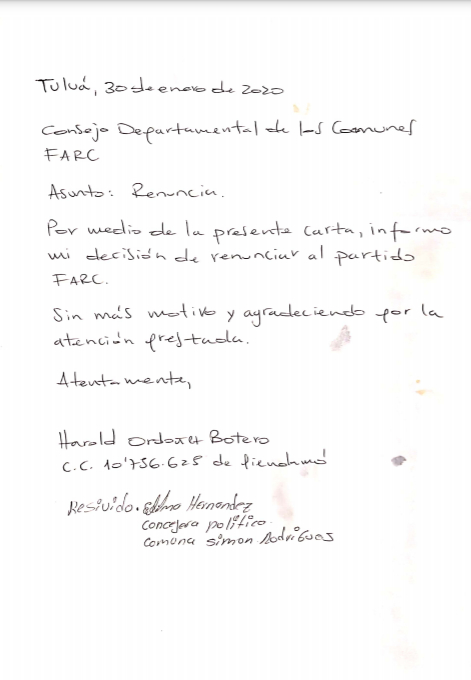 Tuluá, 30 de enero de 2020
Consejo Departamental de los Comunes
FARC
Asunto: Renuncia.
Por medio de la presente carta, informo
mi decisión de renunciar al partido
FARC.
Sin más motivo y agradeciendo por la
atención prestada.
Atentamente,
Harold Ordoñez Botero
C.C. 10'756.625 de Piendamó
Resivido. Hernandez
Concejera político
Comuna Simon Rodriguez